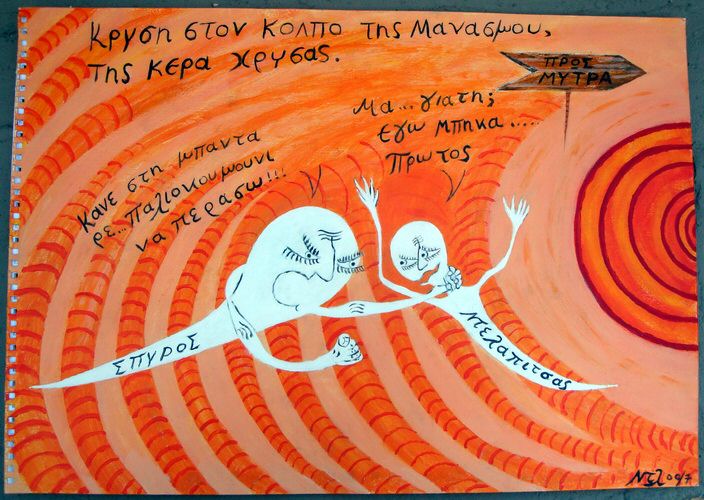 Κρυση στον κολπο της Μανασμου,
της κερα χρυσας.
ΠΡΟΣ
ΜΥΤΡΑ
Μα... γιατη;
εγω μπηκα.....
Πρωτος
Κανε στη μπαντα
ρε... Παλιοκουμουνι
να περασω!!!
ΣΠΥΡΟΣ
Ντελαπιτσας